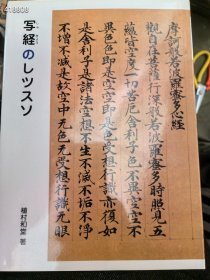 写経のレッスン
植村和堂 著
摩訶般若波羅蜜多心経
觀自在菩薩行深般若波羅蜜多時照見五
蘊皆空度一切苦厄舍利子色不異空空不
異色色即是空空即是色受想行識亦復如
是舍利子是諸法空相不生不滅不垢不淨
不增不減是故空中无色无受想行識无眼